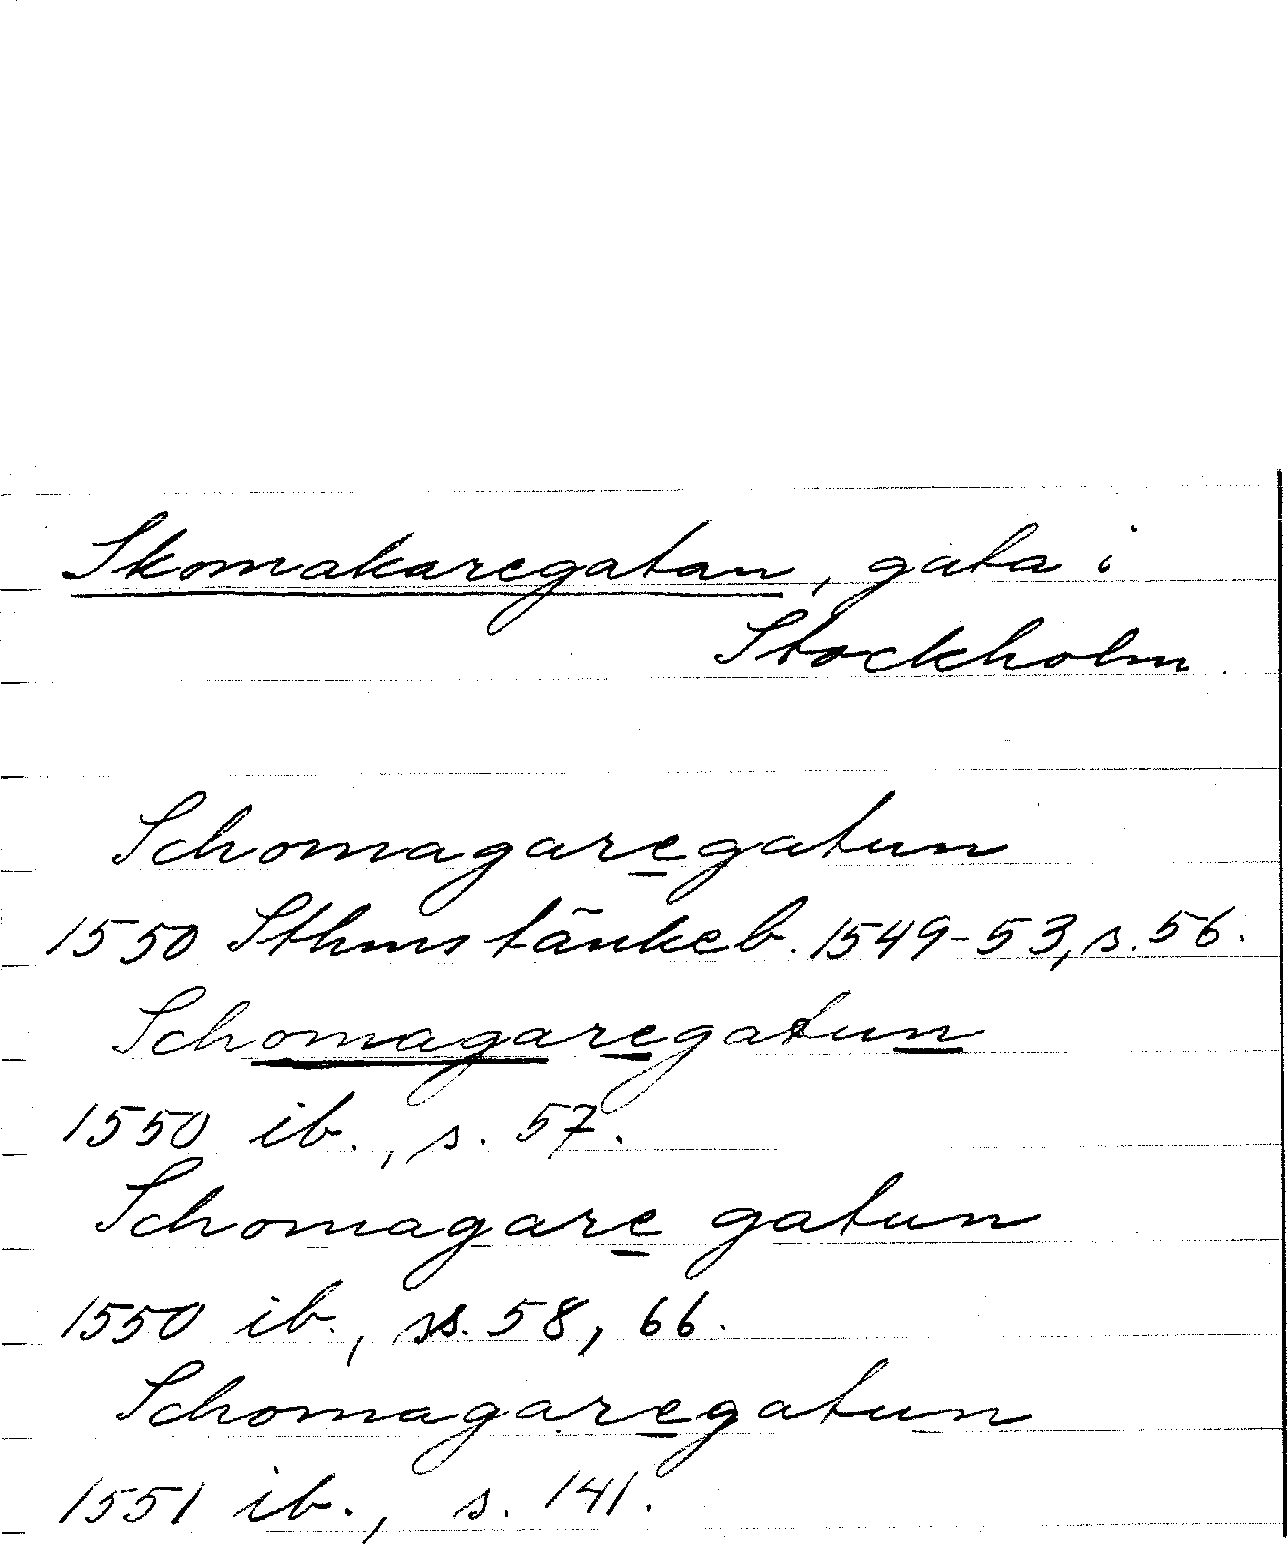 Skomakaregatan, gata i
Stockholm.
Schomagaregatun
1550 Sthms tänkeb. 1549-53, s. 56.
Schomagaregatun
1550 ib., s. 57.
Schomagare gatun
1550 ib., ss. 58, 66.
Schomagaregatun
1551 ib., s. 141.